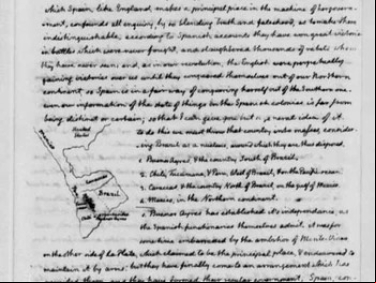 which Spain, like England, makes a principal piece in the machine of her govern-
ment, confounds all enquiry, by so blending truth and falsehood, as to make them
indistinguishable. according to Spanish accounts they have won great victories
in battles which were never fought, and slaughtered thousands of rebels whom
they have never seen; and, as in our revolution, the English were perpetually
gaining victories over us until they conquered themselves out of our Northern
continent, so Spain is in a fair way of conquering herself out of the Southern one.
our information of the state of things in the Spanish colonies is far from
being distinct or certain; so that I can give you but a general idea of it.
to do this we must throw that country into masses, consider-
ing Brazil as a nucleus, around which they are thus disposed.
1. Buenos Ayres & the country South of Brazil.
2. Chili, Peru, West of Brazil, on the Pacific ocean.
3. Caraccas & the country North of Brazil, on the gulf of Mexico.
4. Mexico, in the Northern continent.
1. Buenos Ayres has established its independence, as
the Spanish themselves admit. it was for
sometime embarrassed by the ambition of Monte Video
on the other side of La Plata, which claimed to be the principal place, & endeavored to
maintain it by arms. but they have finally come to an arrangement which has
them, and they have formed their regular government. Spain, con-
United States
Caraccas
Brazil
Chili